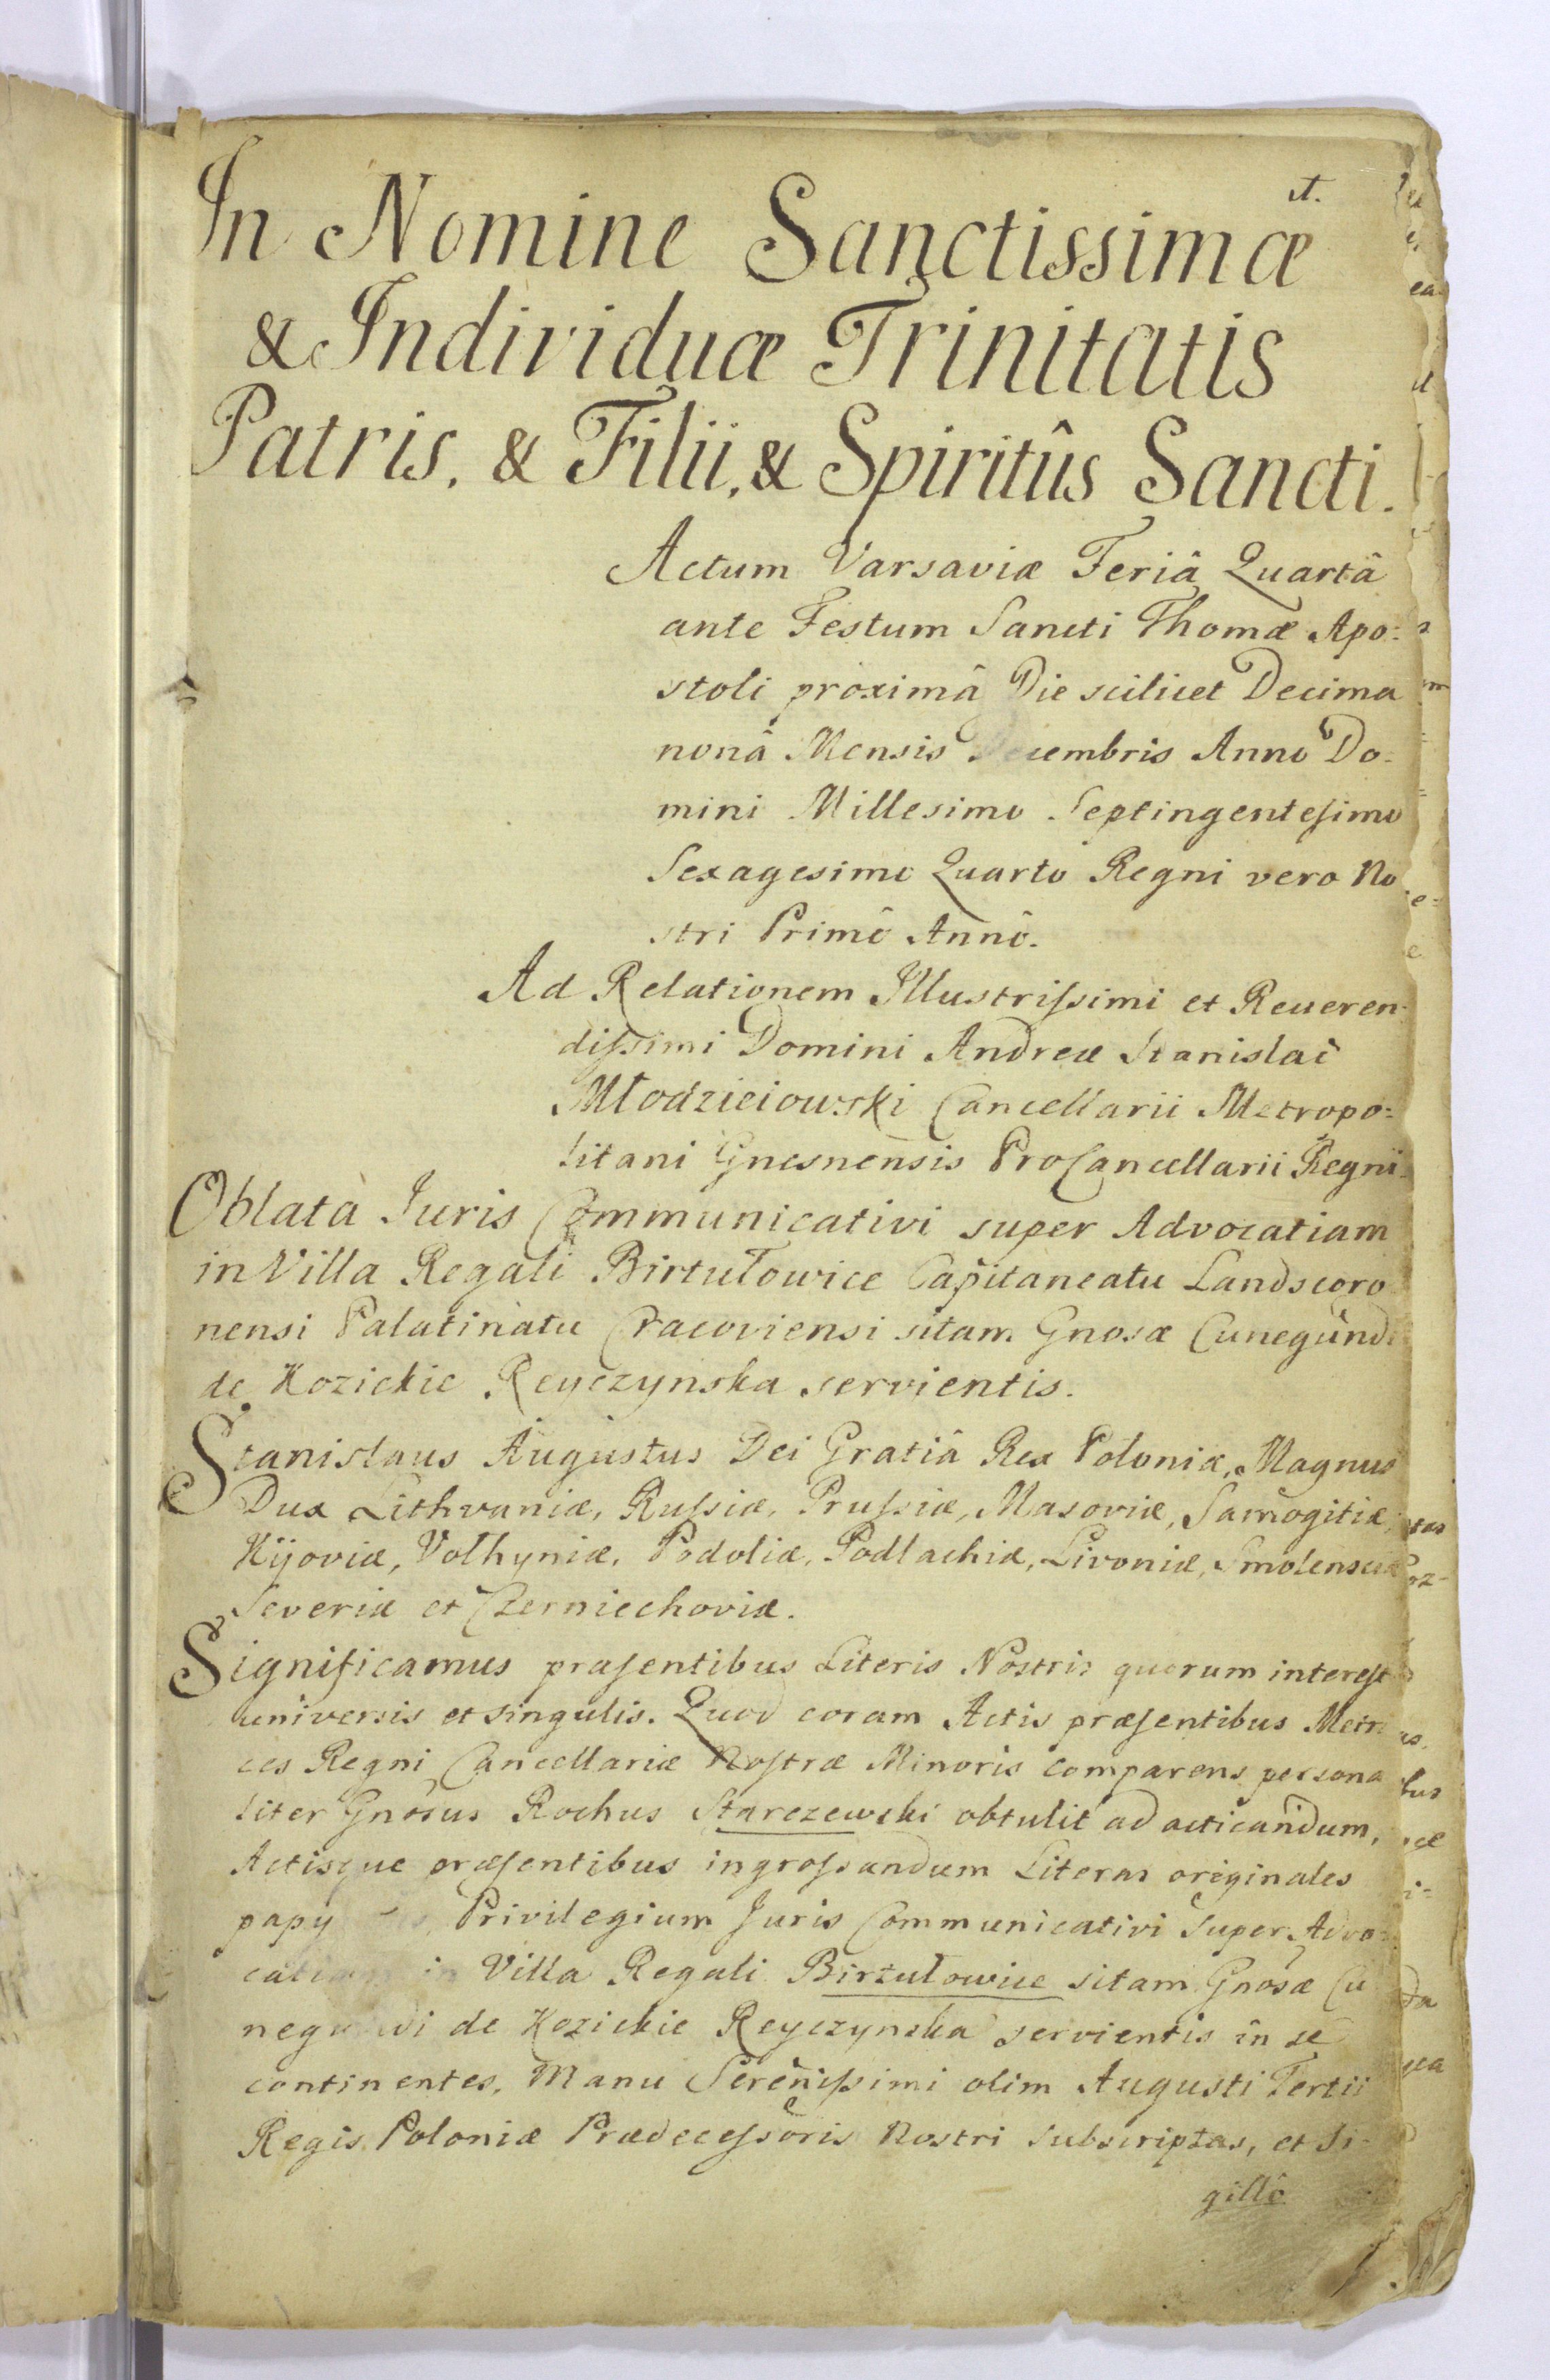 1.
In Nomine Sanctissimæ
& Individuæ Trinitatis
Patris, & Filii, & Spiritûs Sancti.
Actum Varsaviæ Feriâ Quartâ
ante Festum Sancti Thomæ Apo:
stoli proximâ Die scilicet Decima
nonâ Mensis Decembris Anno Do-
mini Millesimo Septingentesimo
Sexagesimo Quarto Regni vero No
stri Primô Annô.
Ad Relationem Illustrissimi et Reueren-
dissimi Domini Andreæ Stanislai
Młodzieiowski Cancellarii Metropo:
litani Gnesnensis ProCancellarii Regni
Oblata Iuris Communicativi super Advocatiam
in Villa Regali Birtułowice Capitaneatu Landscoro
nensi Palatinatu Cracoviensi sitam Gnosæ Cunegundi
de Kozickie Reyczynska servientis.
Stanislaus Augustus Dei Gratiâ Rex Poloniæ, Magnus
Dux Lithvaniæ, Russiæ, Prussiæ, Masoviæ, Samogitiæ,
Kijoviæ, Volhyniæ, Podoliæ, Podlachiæ, Livoniæ, Smolensciæ
Severiæ et Czerniechoviæ.
Significamus præsentibus Literis Nostris quorum interest
universis et singulis. Quod coram Actis præsentibus Metri
ces Regni Cancellariæ Nostræ Minoris comparens persona
liter Gnosus Rochus Starczewski obtulit ad acticandum,
Actisque præsentibus ingrossandum Literas originales
papy Privilegium Juris Communicativi super Advo:
cationem in Villa Regali Birtułowice sitam Gnosæ Cu
negundi de Kozickie Reyczynska servientis in se
continentes, Manu Serenissimi olim Augusti Tertii
Regis Poloniæ Prædecessoris Nostri Subscriptas, et Si-
gillô